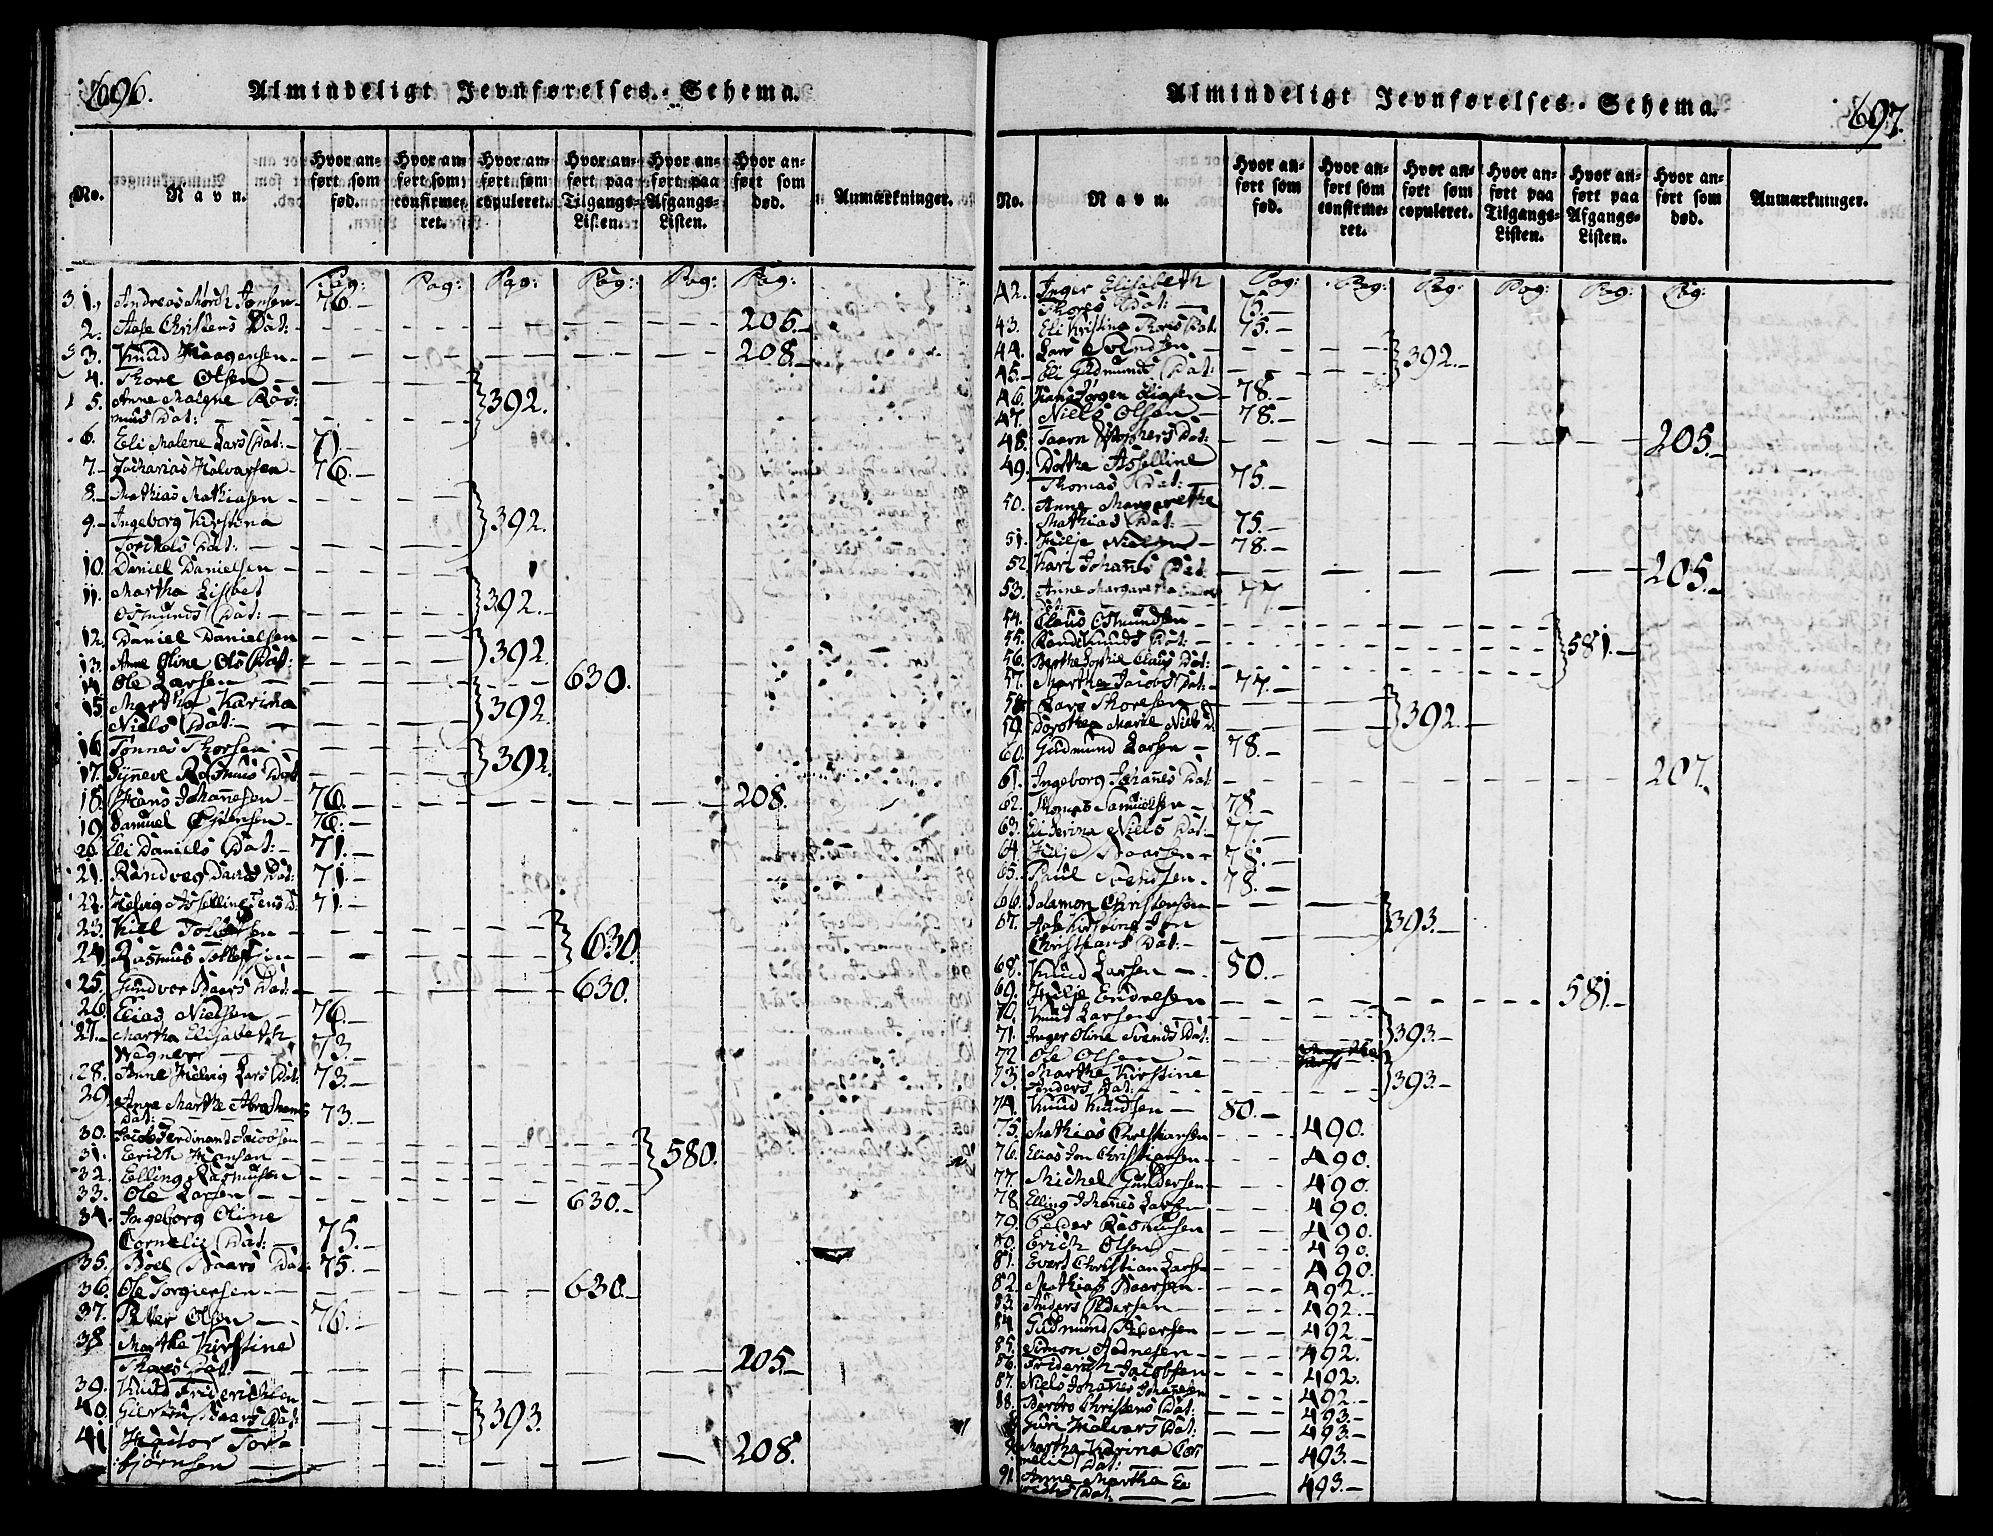 696.
Almindeligt Jevnførelses-Schema.
No.
Navn.
Hvor anført som fød.
Hvor anført som confirmeret.
Hvor anført som copuleret.
Hvor anført paa Tilgangs-Listen.
Hvor anført paa Afgangs-Listen.
Hvor anført som død.
Anmærkninger.
Pag: Pag: Pag: Pag: Pag: Pag:
1. Andreas Mørch Jansen 76.
2. Aase Christens Dat: 205.
3. Knud Haagensen 208.
4. Thore Olsen
5. Anne Malene Ras-
muus Dat: 392.
6. Eli Malene Lars Dat: 71.
7. Zacharias Halvorsen 76.
8. Mathias Mathiasen
9. Ingeborg Kirstina 392.
Dat:
10. Daniel Danielsen
11. Martha Lisbet 392.
Osmunds Dat:
12. Daniel Danielsen
13. Anne Oline Ols Dat: 392.
14. Ole Larsen 630.
15. Martha Karina 392.
Niels Dat:
16. Tønnes Thorsen
17. Synneve Rasmuus Dat 392.
18. Hans Johannesen 76. 208.
19. Samuel 76.
20. Eli Daniels Dat: 71.
21. Randveg Davids Dat: 71.
22. Helvig Asseline Jens D. 71.
23. Kiel Tollefsen
24. Rasmus 630.
25. Gundvor Baars Dat: 630.
26. Elias Nielsen 76.
27. Martha Elisabeth
Wegner 73.
28. Anne Helvig Lars Dat: 73.
29. Anne Marthe Abrahams
Dat: 73.
30. Jacob Ferdinant Jacobsen
31. Erich Hansen 580.
32. Elling Rasmusen
33. Ole Larsen 630.
34. Ingeborg Oline
Cornelii Dat: 75.
35. Boel Baars Dat: 75.
36. Ole Torgiersen 630.
37. Peter Olsen 76.
38. Marthe Kirstine
Thores Dat: 205.
39. Knud Friderichsen
40. Giertru Baars Dat: 393.
41. Tor-
bjørnsen 208.
697.
Almindeligt Jevnførelses-Schema.
No.
Navn.
Hvor anført som fød.
Hvor anført som confirmeret.
Hvor anført som copuleret.
Hvor anført paa Tilgangs-Listen.
Hvor anført paa Afgangs-Listen.
Hvor anført som død.
Anmærkninger.
Pag: Pag: Pag: Pag: Pag: Pag:
42. Inger Elisabeth
Thores Dat: 75.
43. Eli Kristina Thores Dat: 75.
44. Lars Svendsen
45. Eli Gudmunds Dat: 392.
46. Hans Jørgen Eliasen 78.
47. Niels Olsen 78.
48. Dat: 205.
49. Dorthe Asselline
Thomas Dat: 75.
50. Anne Margarethe
Mathias Dat: 75.
51. Hilje Nielsen 78.
52. Kari Johanes Dat: 205.
53. Anne Margaretha
Dat: 77.
54. Claus Osmundsen
55. Rande Knuds Dat: 581.
56. Berthe Sophie Claus Dat:
57. Marthe Jacobs Dat: 77.
58. Lars Thoresen
59. Dorothea Marie Niels D. 392.
60. Gudmund Larsen 78.
61. Ingeborg Johanes Dat 207.
62. Thomas Samuelsen 78.
63. Eli Serina Niels Dat: 77.
64. Hilje Baarsen 78.
65. Paul Svendsen 78.
66. Salamon Christensen
67. Aase Kirstine Jon
Christians Dat: 393.
68. Knud Larsen 80.
69. Hilje Endresen 581.
70. Knud Larsen
71. Inger Oline Svends Dat: 393.
72. Ole Olsen
73. Marthe Kirstine
Anders Dat: 393.
74. Knud Knudsen 80.
75. Mathias Christiansen 490.
76. Elias Jon Christiansen 490.
77. Michel Gundersen 490.
78. Elling Johanes Larsen 490.
79. Peder Rasmusen 490.
80. Erich Olsen 490.
81. Evert Christian Larsen 490.
82. Mathias Baarsen 492.
83. Anders Pedersen 492.
84. Gudmund Pedersen 492.
85. Simon 492.
86. Friderich Jacobsen 492.
87. Niels Johanes Johannesen 492.
88. Berbro Christens Dat: 493.
Guri Halvors Dat: 493.
Martha Karina Cor-
nelii Dat: 493.
91. Anne Martha E-
richs Dat. 493.